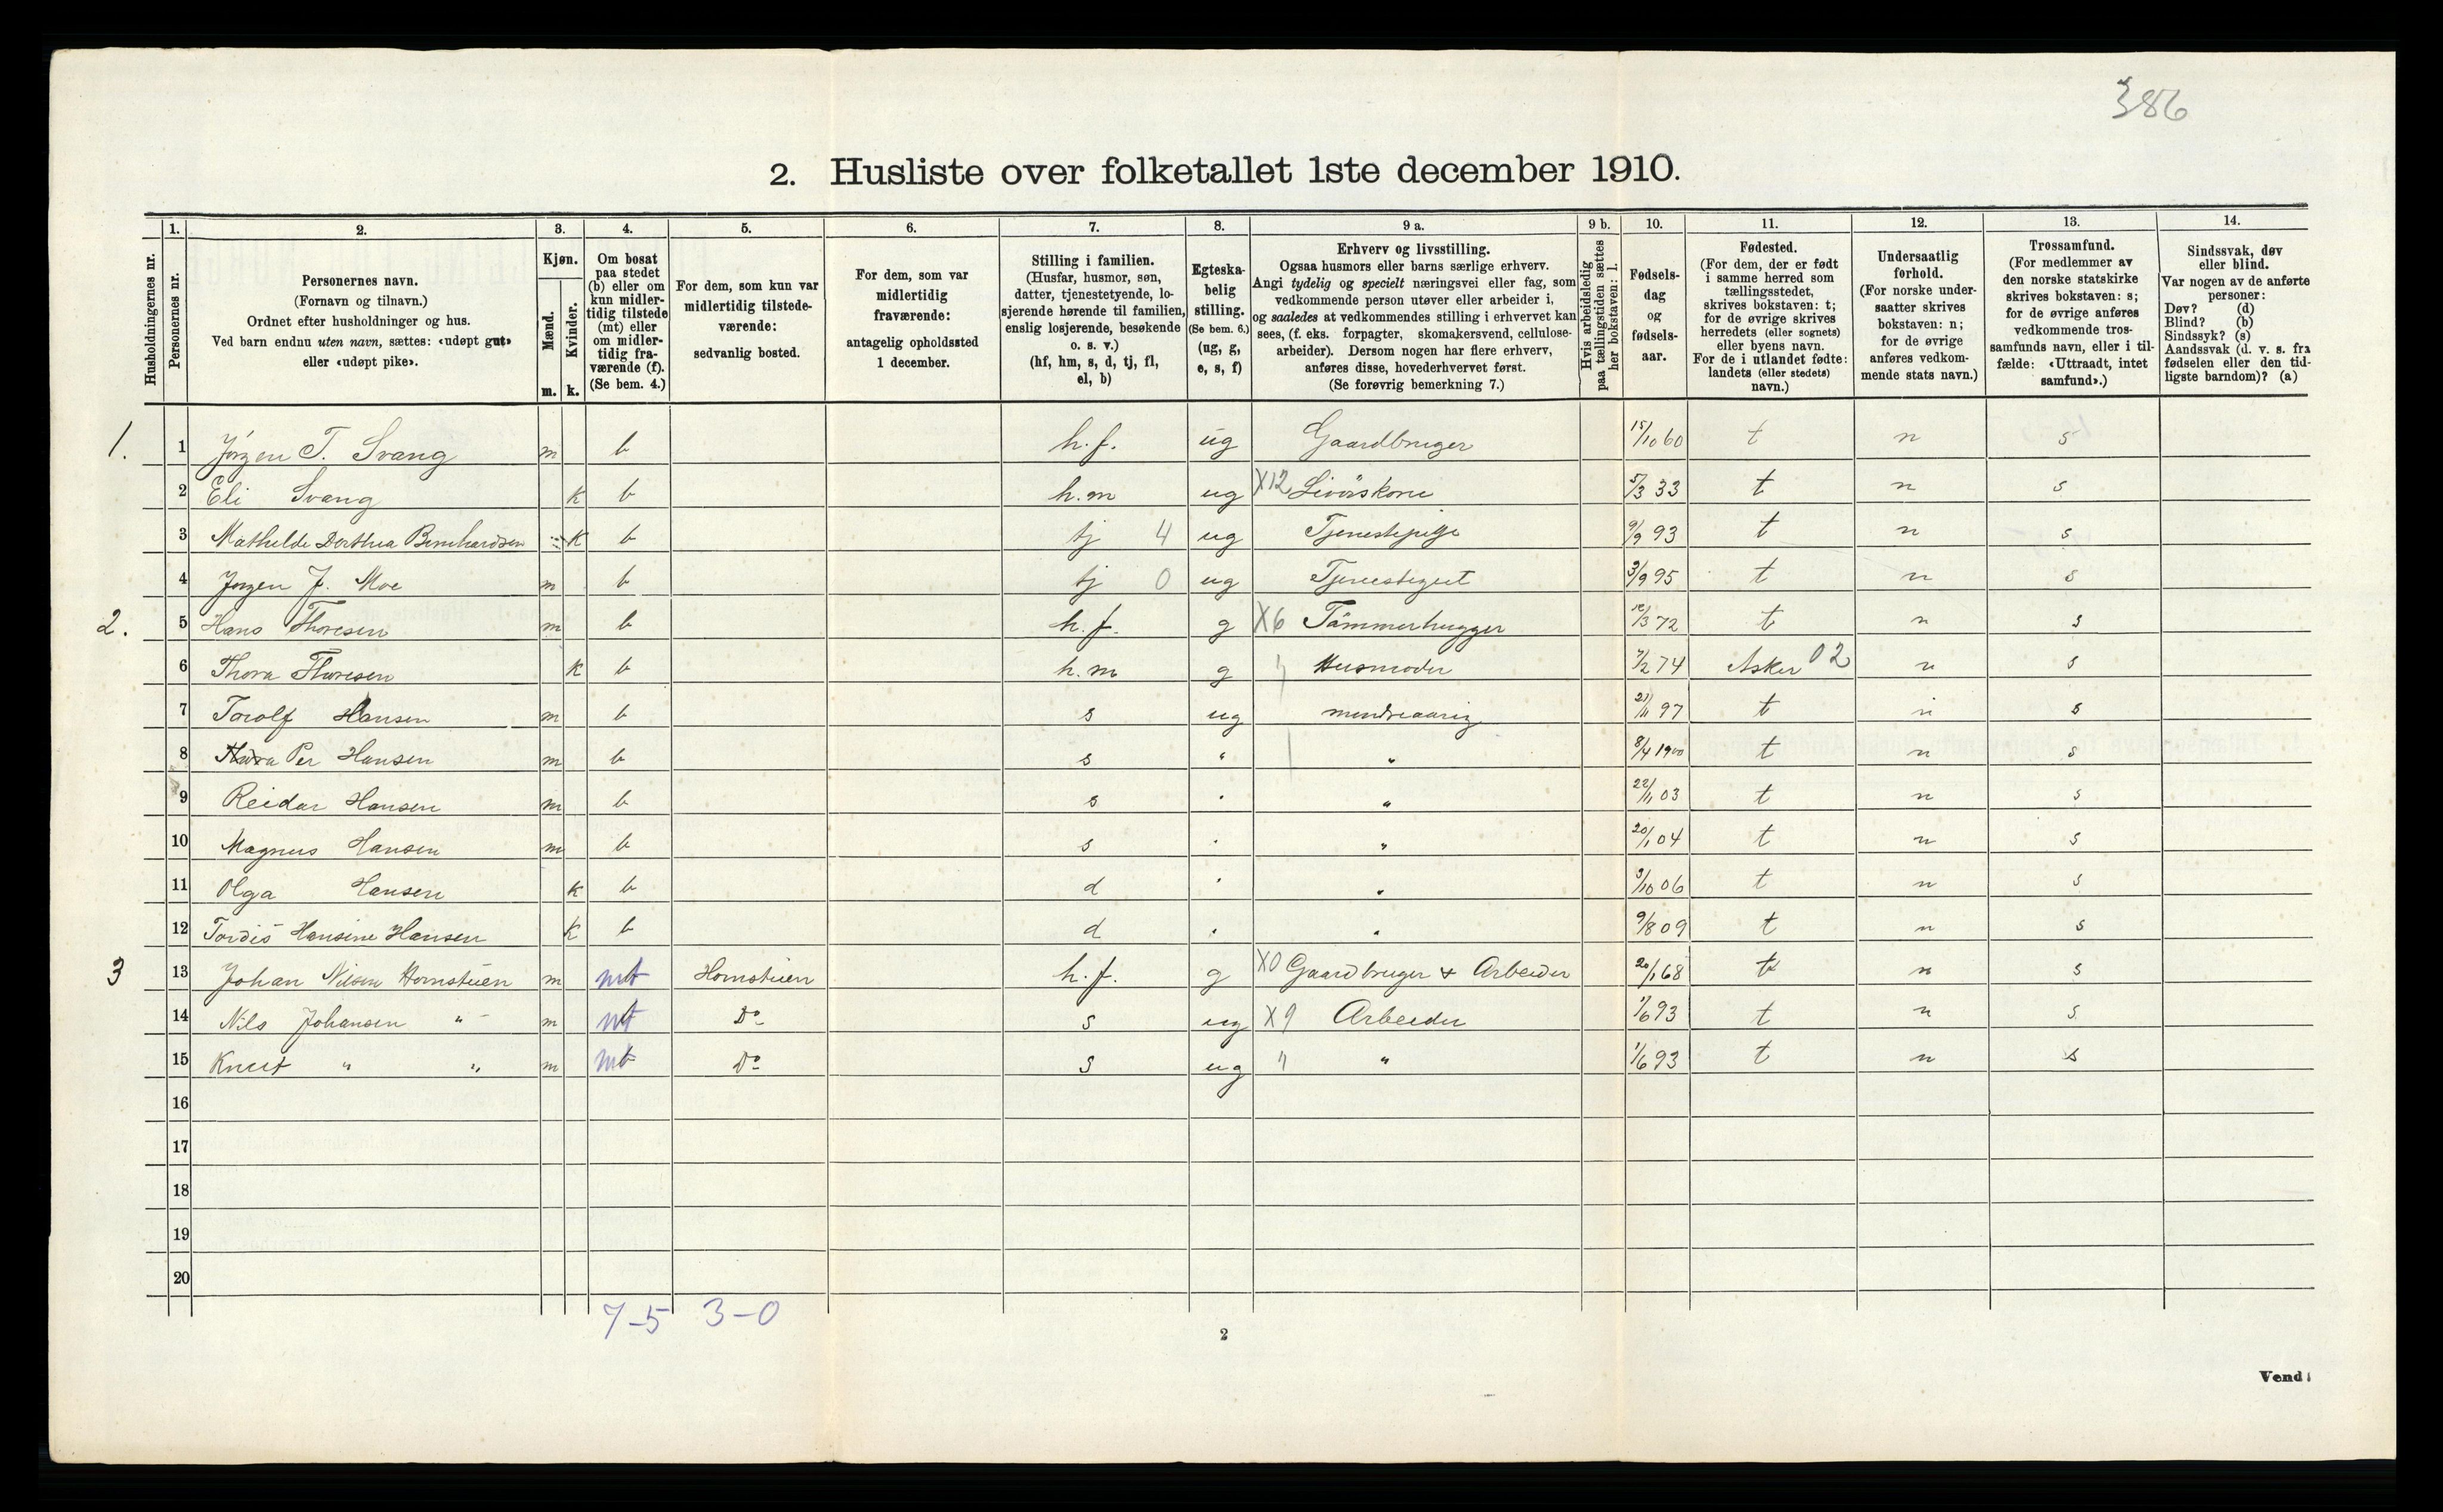 386
2. Husliste over folketallet 1ste december 1910.
1. 2. 3. 4. 5. 6. 7. 8. 9 a. 9 b. 10. 11. 12. 13. 14.
Husholdningernes nr.
Personernes nr.
Personernes navn.
(Fornavn og tilnavn.)
Ordnet efter husholdninger og hus.
Ved barn endnu uten navn, sættes: «udøpt gut»
eller «udøpt pike».
Kjøn.
Mænd.
Kvinder.
m. k.
Om bosat
paa stedet
(b) eller om
kun midler-
tidig tilstede
(mt) eller
om midler-
tidig fra-
værende (f).
(Se bem. 4.)
For dem, som kun var
midlertidig tilstede-
værende:
sedvanlig bosted.
For dem, som var
midlertidig
fraværende:
antagelig opholdssted
1 december.
Stilling i familien.
(Husfar, husmor, søn,
datter, tjenestetyende, lo-
sjerende hørende til familien,
enslig losjerende, besøkende
o. s. v.)
(hf, hm, s, d, tj, fl,
el, b)
Egteska-
belig
stilling.
(Se bem. 6.)
(ug, g,
e, s, f)
Erhverv og livsstilling.
Ogsaa husmors eller barns særlige erhverv.
Angi tydelig og specielt næringsvei eller fag, som
vedkommende person utøver eller arbeider i,
og saaledes at vedkommendes stilling i erhvervet kan
sees, (f. eks. forpagter, skomakersvend, cellulose-
arbeider). Dersom nogen har flere erhverv,
anføres disse, hovederhvervet først.
(Se forøvrig bemerkning 7.)
Hvis arbeidsledig
paa tællingstiden sættes
her bokstaven: l.
Fødsels-
dag
og
fødsels-
aar.
Fødested.
(For dem, der er født
i samme herred som
tællingsstedet,
skrives bokstaven: t;
for de øvrige skrives
herredets (eller sognets)
eller byens navn.
For de i utlandet fødte:
landets (eller stedets)
navn.)
Undersaatlig
forhold.
(For norske under-
saatter skrives
bokstaven: n;
for de øvrige
anføres vedkom-
mende stats navn.)
Trossamfund.
(For medlemmer av
den norske statskirke
skrives bokstaven: s;
for de øvrige anføres
vedkommende tros-
samfunds navn, eller i til-
fælde: «Uttraadt, intet
samfund».)
Sindssvak, døv
eller blind.
Var nogen av de anførte
personer:
Døv? (d)
Blind? (b)
Sindssyk? (s)
Aandssvak (d. v. s. fra
fødselen eller den tid-
ligste barndom)? (a)
1. 1 Jörgen T. Svang m b h.f. ug Gaardbruger 15/10 60 t n s
2 Eli Svang k b h.m ug X12 5/3 33 t n s
3 Mathilde Dorthea Bernhardsen k b tj 4 ug Tjenestepige 9/9 93 t n s
4 Jörgen J. Moe m b tj 0 ug Tjenestegut 3/9 95 t n s
2. 5 Hans Thoresen m b h.f. g X6 Tömmerhugger /3 72 t n s
6 Thora Thoresen k b h.m g " Husmoder 7/2 74 Asker 02 n s
7 Torolf Hansen m b s ug mindreaarig 21/11 97 t n s
8 Per Hansen m b s " " 8/4 1900 t n s
9 Reidar Hansen m b s " " 22/11 03 t n s
10 Magnus Hansen m b s " " 20/1 04 t n s
11 Olga Hansen k b d " " 9/10 06 t n s
12 Tordis Hansine Hansen k b d " " 9/8 09 t n s
3 13 Johan Nilsen Hornstuen m mt Hornstuen h.f. g X0 Gaardbruger & Arbeider 20/1 68 t n s
14 Nils Johansen " m mt Do s ug X9 Arbeider 1/6 93 t n s
15 Knut " " m mt Do s ug " " 1/6 93 t n s
16
17
18
19
20
7-5 3-0
2
Vend!